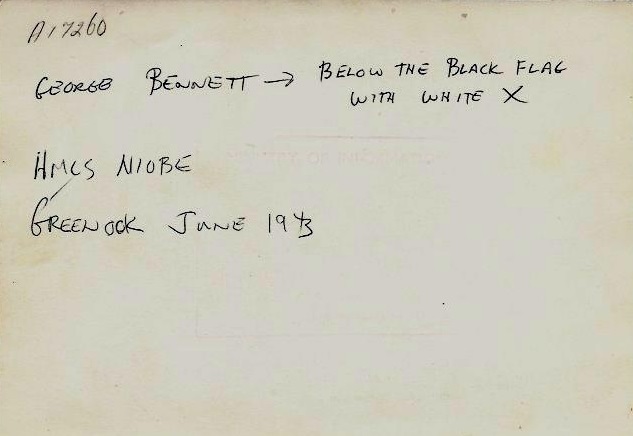 A17260
GEORGE BENNETT → BELOW THE BLACK FLAG
WITH WHITE X
HMCS NIOBE
GREENOCK JUNE 1943